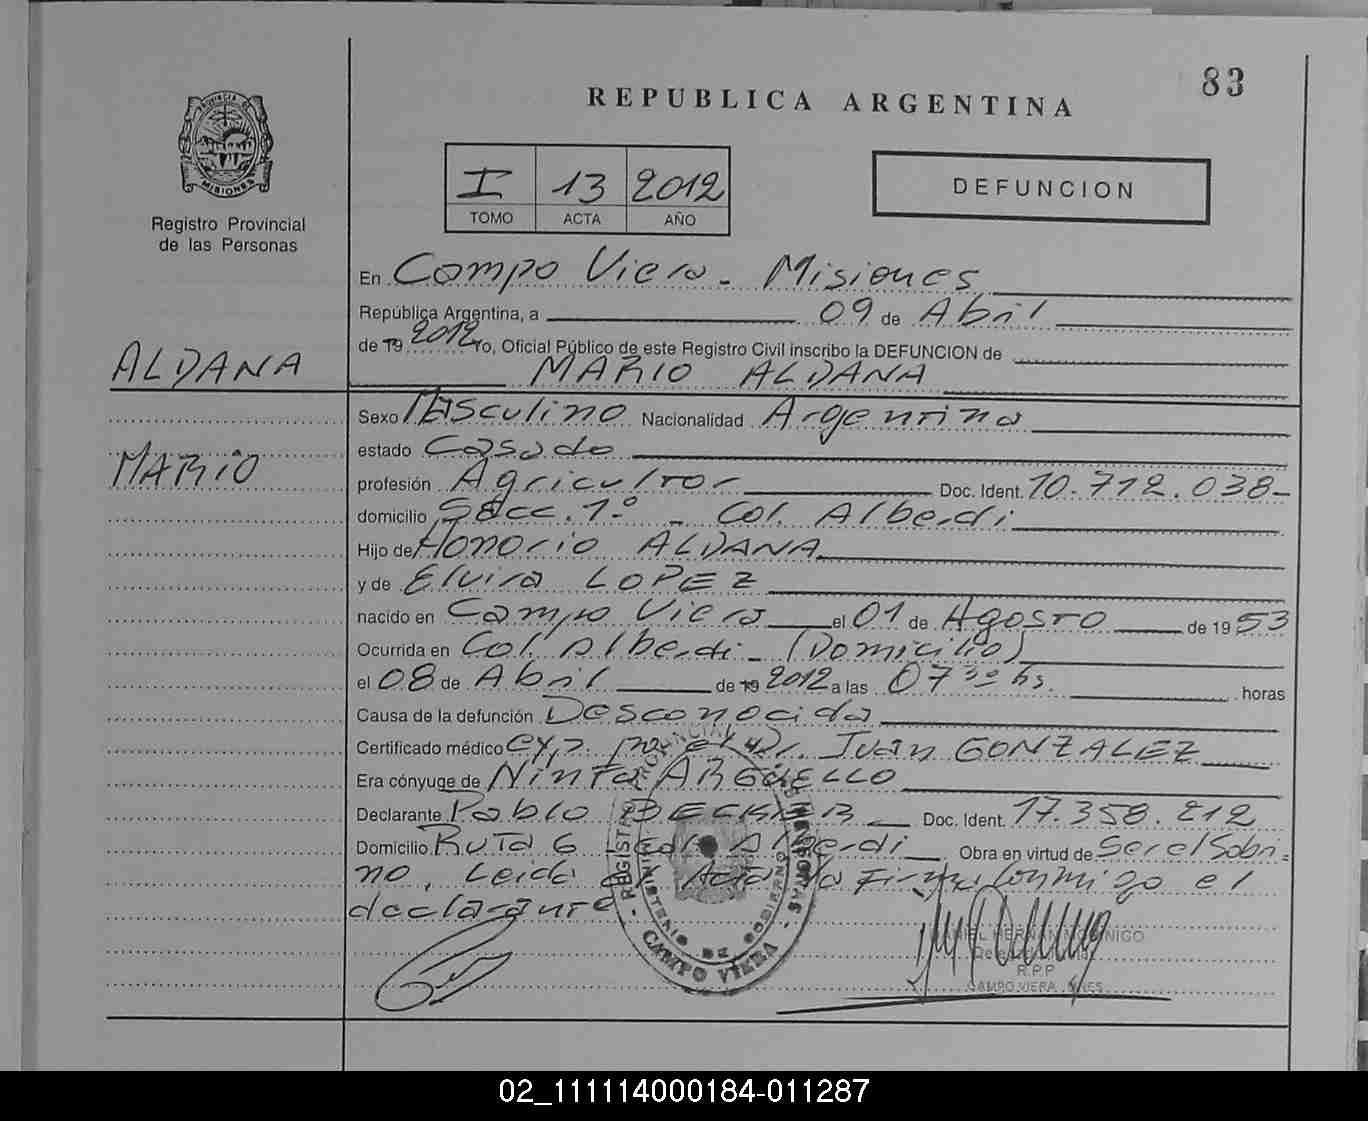 83
REPUBLICA ARGENTINA
PROVINCIA DE
MISIONES
Registro Provincial
de las Personas
I 13 2012
TOMO ACTA AÑO
DEFUNCION
En Campo Viera - Misiones
República Argentina, a 09 de Abril
de 19 2012 Yo, Oficial Público de este Registro Civil inscribo la DEFUNCION de
ALDANA
MARIO ALDANA
Sexo Masculino Nacionalidad Argentina
estado Casado
MARIO
profesión Agricultor Doc. Ident. 10.712.038-
domicilio Secc. 1.º - Col. Alberdi
Hijo de Honorio ALDANA
y de Elvira LOPEZ
nacido en Campo Viera el 01 de Agosto de 1953
Ocurrida en Col. Alberdi - (Domicilio)
el 08 de Abril de 19 2012 a las 07 30 hs. horas
Causa de la defunción Desconocida
Certificado médico exp. por el Dr. Juan GONZALEZ
Era cónyuge de Ninfa ARGÜELLO
Declarante Pablo BECKER Doc. Ident. 17.358.212
Domicilio Ruta 6 - Col. Alberdi Obra en virtud de Ser el Sobri-
no. Leida el Acta la Firma conmigo el
declarante
REGISTRO PROVINCIAL DE LAS PERSONAS
MINISTERIO DE GOBIERNO
CAMPO VIERA
R.P.P
CAMPO VIERA
02_111114000184-011287